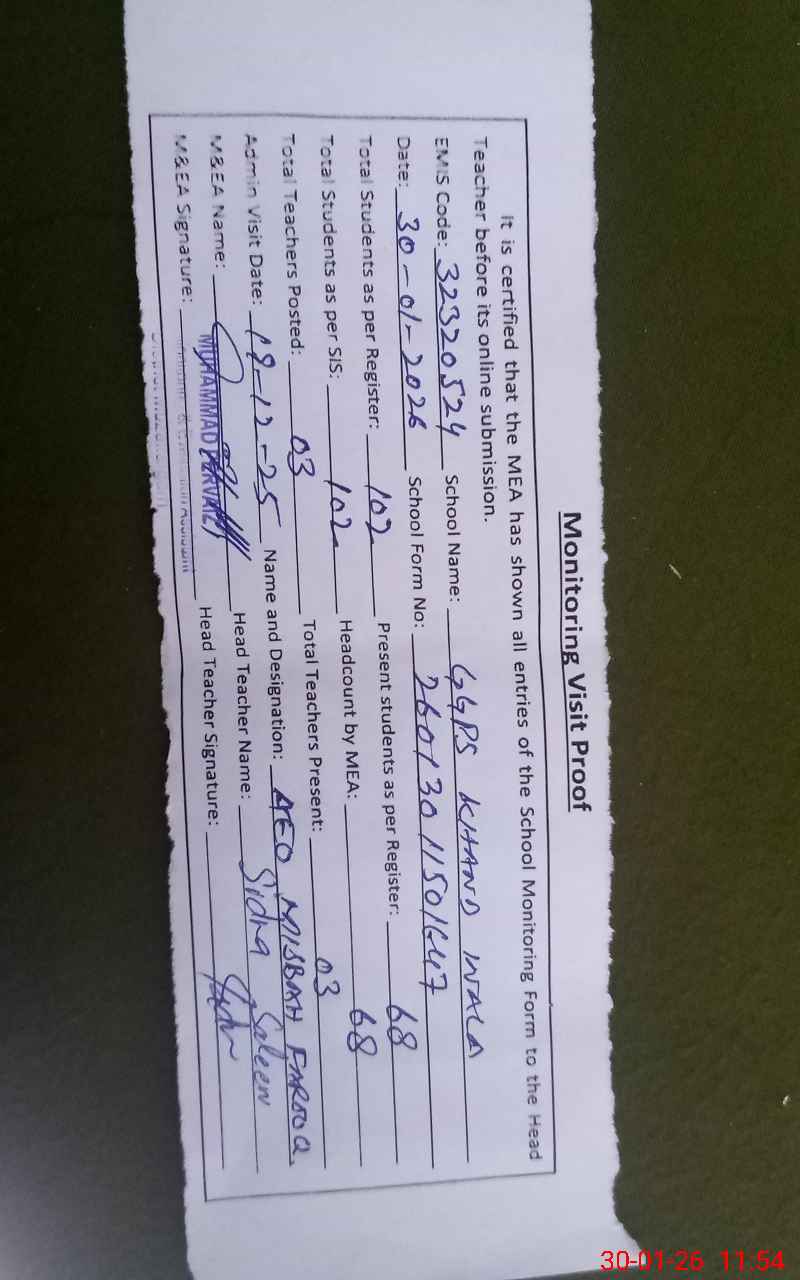 Monitoring Visit Proof
It is certified that the MEA has shown all entries of the School Monitoring Form to the Head
Teacher before its online submission.
EMIS Code: 32320524 School Name: GGPS KHAND WALA
Date: 30-01-2026 School Form No:
Total Students as per Register: 102 Present students as per Register: 68
Total Students as per SIS: 102 Headcount by MEA: 68
Total Teachers Posted: 03 Total Teachers Present: 03
Admin Visit Date: 19-12-25 Name and Designation: AEO MISBAH FAROOQ.
M&EA Name: MUHAMMAD PARVAIZ Head Teacher Name: Sidra Saleem
M&EA Signature: Head Teacher Signature:
30-01-26 11:54